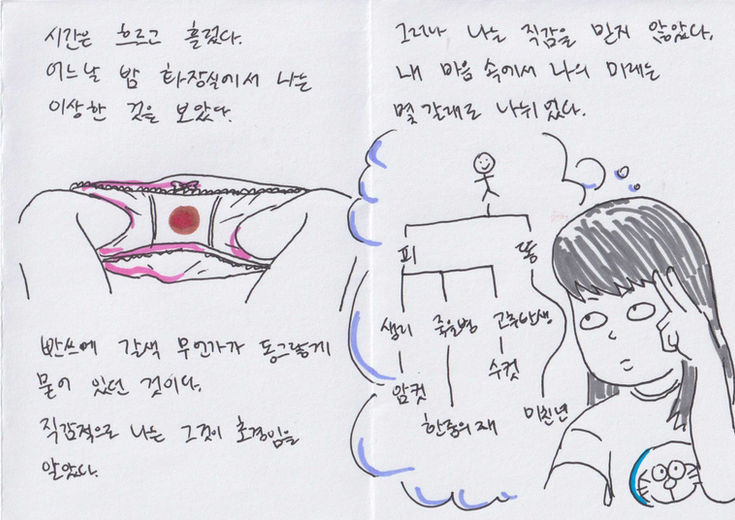 시간은 흐르고 흘렀다.
어느날 밤 화장실에서 나는
이상한 것을 보았다.
빤쓰에 갈색 무언가가 동그랗게
묻어 있던 것이다.
직감적으로 나는 그것이 초경임을
알았다.
그러나 나는 직감을 믿지 않았다.
내 마음 속에서 나의 미래는
몇 갈래로 나뉘었다.
피 똥
생리 죽을병 고추탄생
암컷 수컷
한줌의 재 미친년